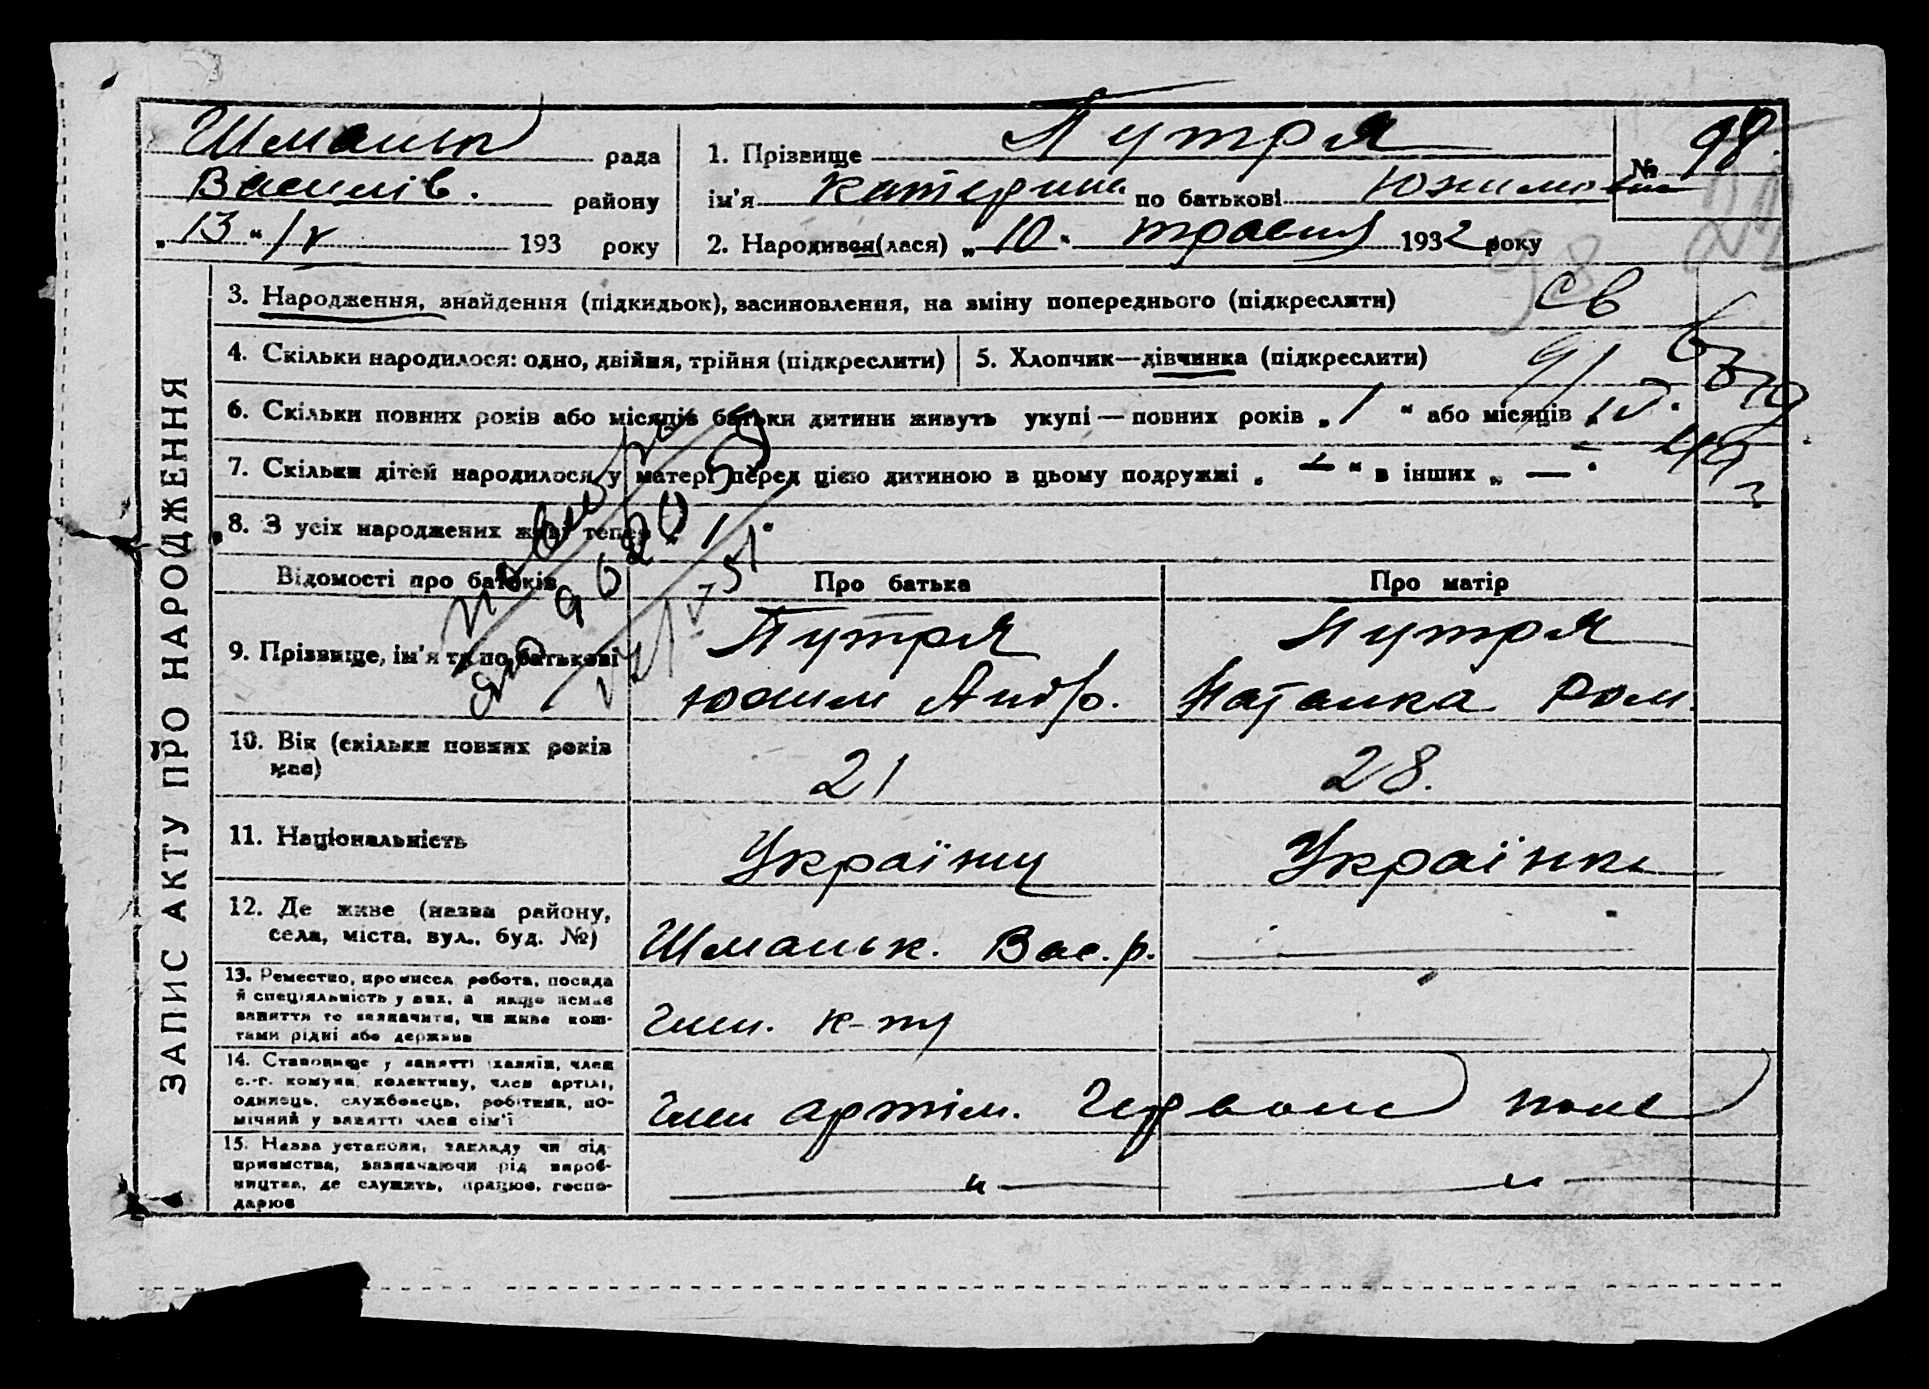 ЗАПИС АКТУ ПРО НАРОДЖЕННЯ
рада
Василів. району
„13“ /V 193 року
1. Прізвище Путря
ім'я Катерина по батькові
2. Народився(лася) „10“ травня 1932 року
№ 98
98
3. Народження, знайдення (підкидьок), васиновлення, на зміну попереднього (підкреслити) св
4. Скільки народилося: одно, двійня, трійня (підкреслити)
5. Хлопчик—дівчинка (підкреслити)
6. Скільки повних років або місяців батьки дитини живуть укупі — повних років „1“ або місяців
7. Скільки дітей народилося у матері перед цією дитиною в цьому подружжі „—“ в інших „—“
8. З усіх народжених живі тепер „1“
Відомості про батьків
Про батька
Про матір
9. Прізвище, ім'я та по батькові
Путря
Юхим Андр.
Путря
Наталка Ром.
10. Вік (скільки повних років має)
21
28.
11. Національність
Українц
Українка
12. Де живе (назва району,
села, міста, вул., буд. №)
Шмальк. Вас. р.
13. Ремество, промисел робота, посада
й спеціяльність у них, а якщо немає
заняття то зазначити, чи живе кош-
тами рідні або держави
14. Становище у занятті (хазяїн, член
с.-г. комуни, колективу, член артілі,
одинець, службовець, робітник, по-
мічний у занятті член сім'ї
член артіли. Червоне поле
15. Назва установи, закладу чи під-
приємства, зазначаючи рід вироб-
ництва, де служить, працює, госпо-
дарює
— „ —
— „ —